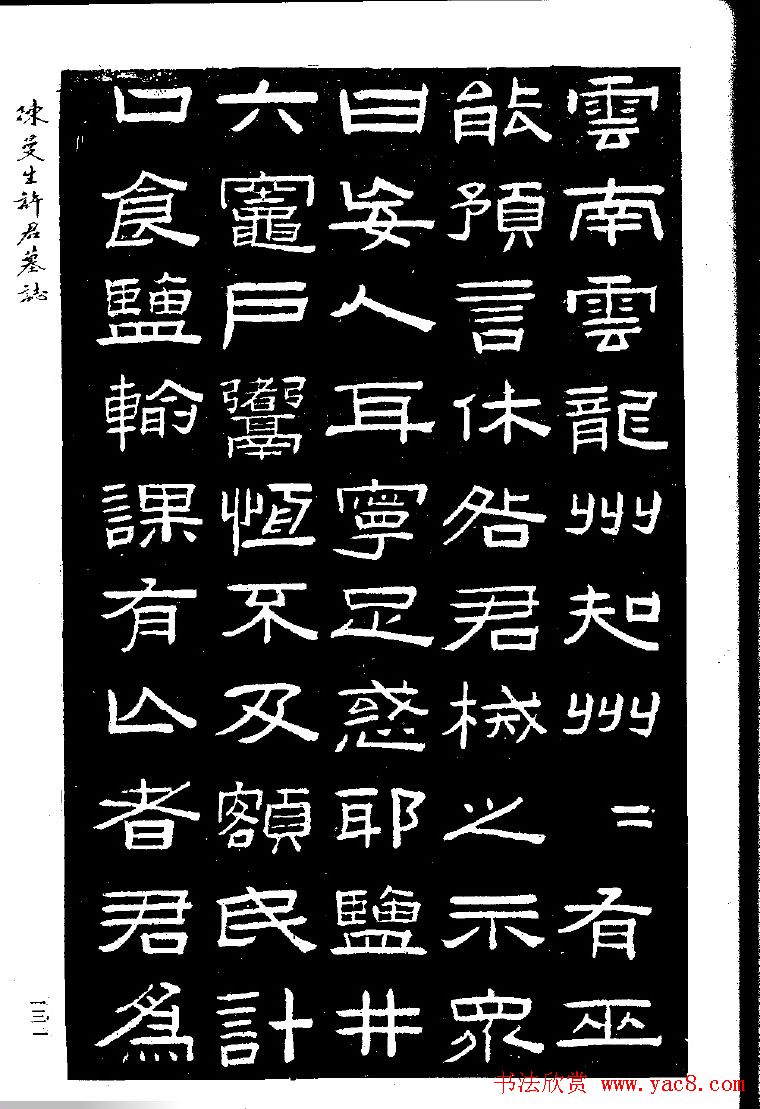 雲南雲龍州知州〻有巫
能預言休咎君械之示衆
曰妄人耳寧足惑耶鹽井
六竈戶䰞恆不及額民計
口食鹽輸課有亾者君爲
陳曼生許君墓誌
一三一
书法欣赏 www.yac8.com